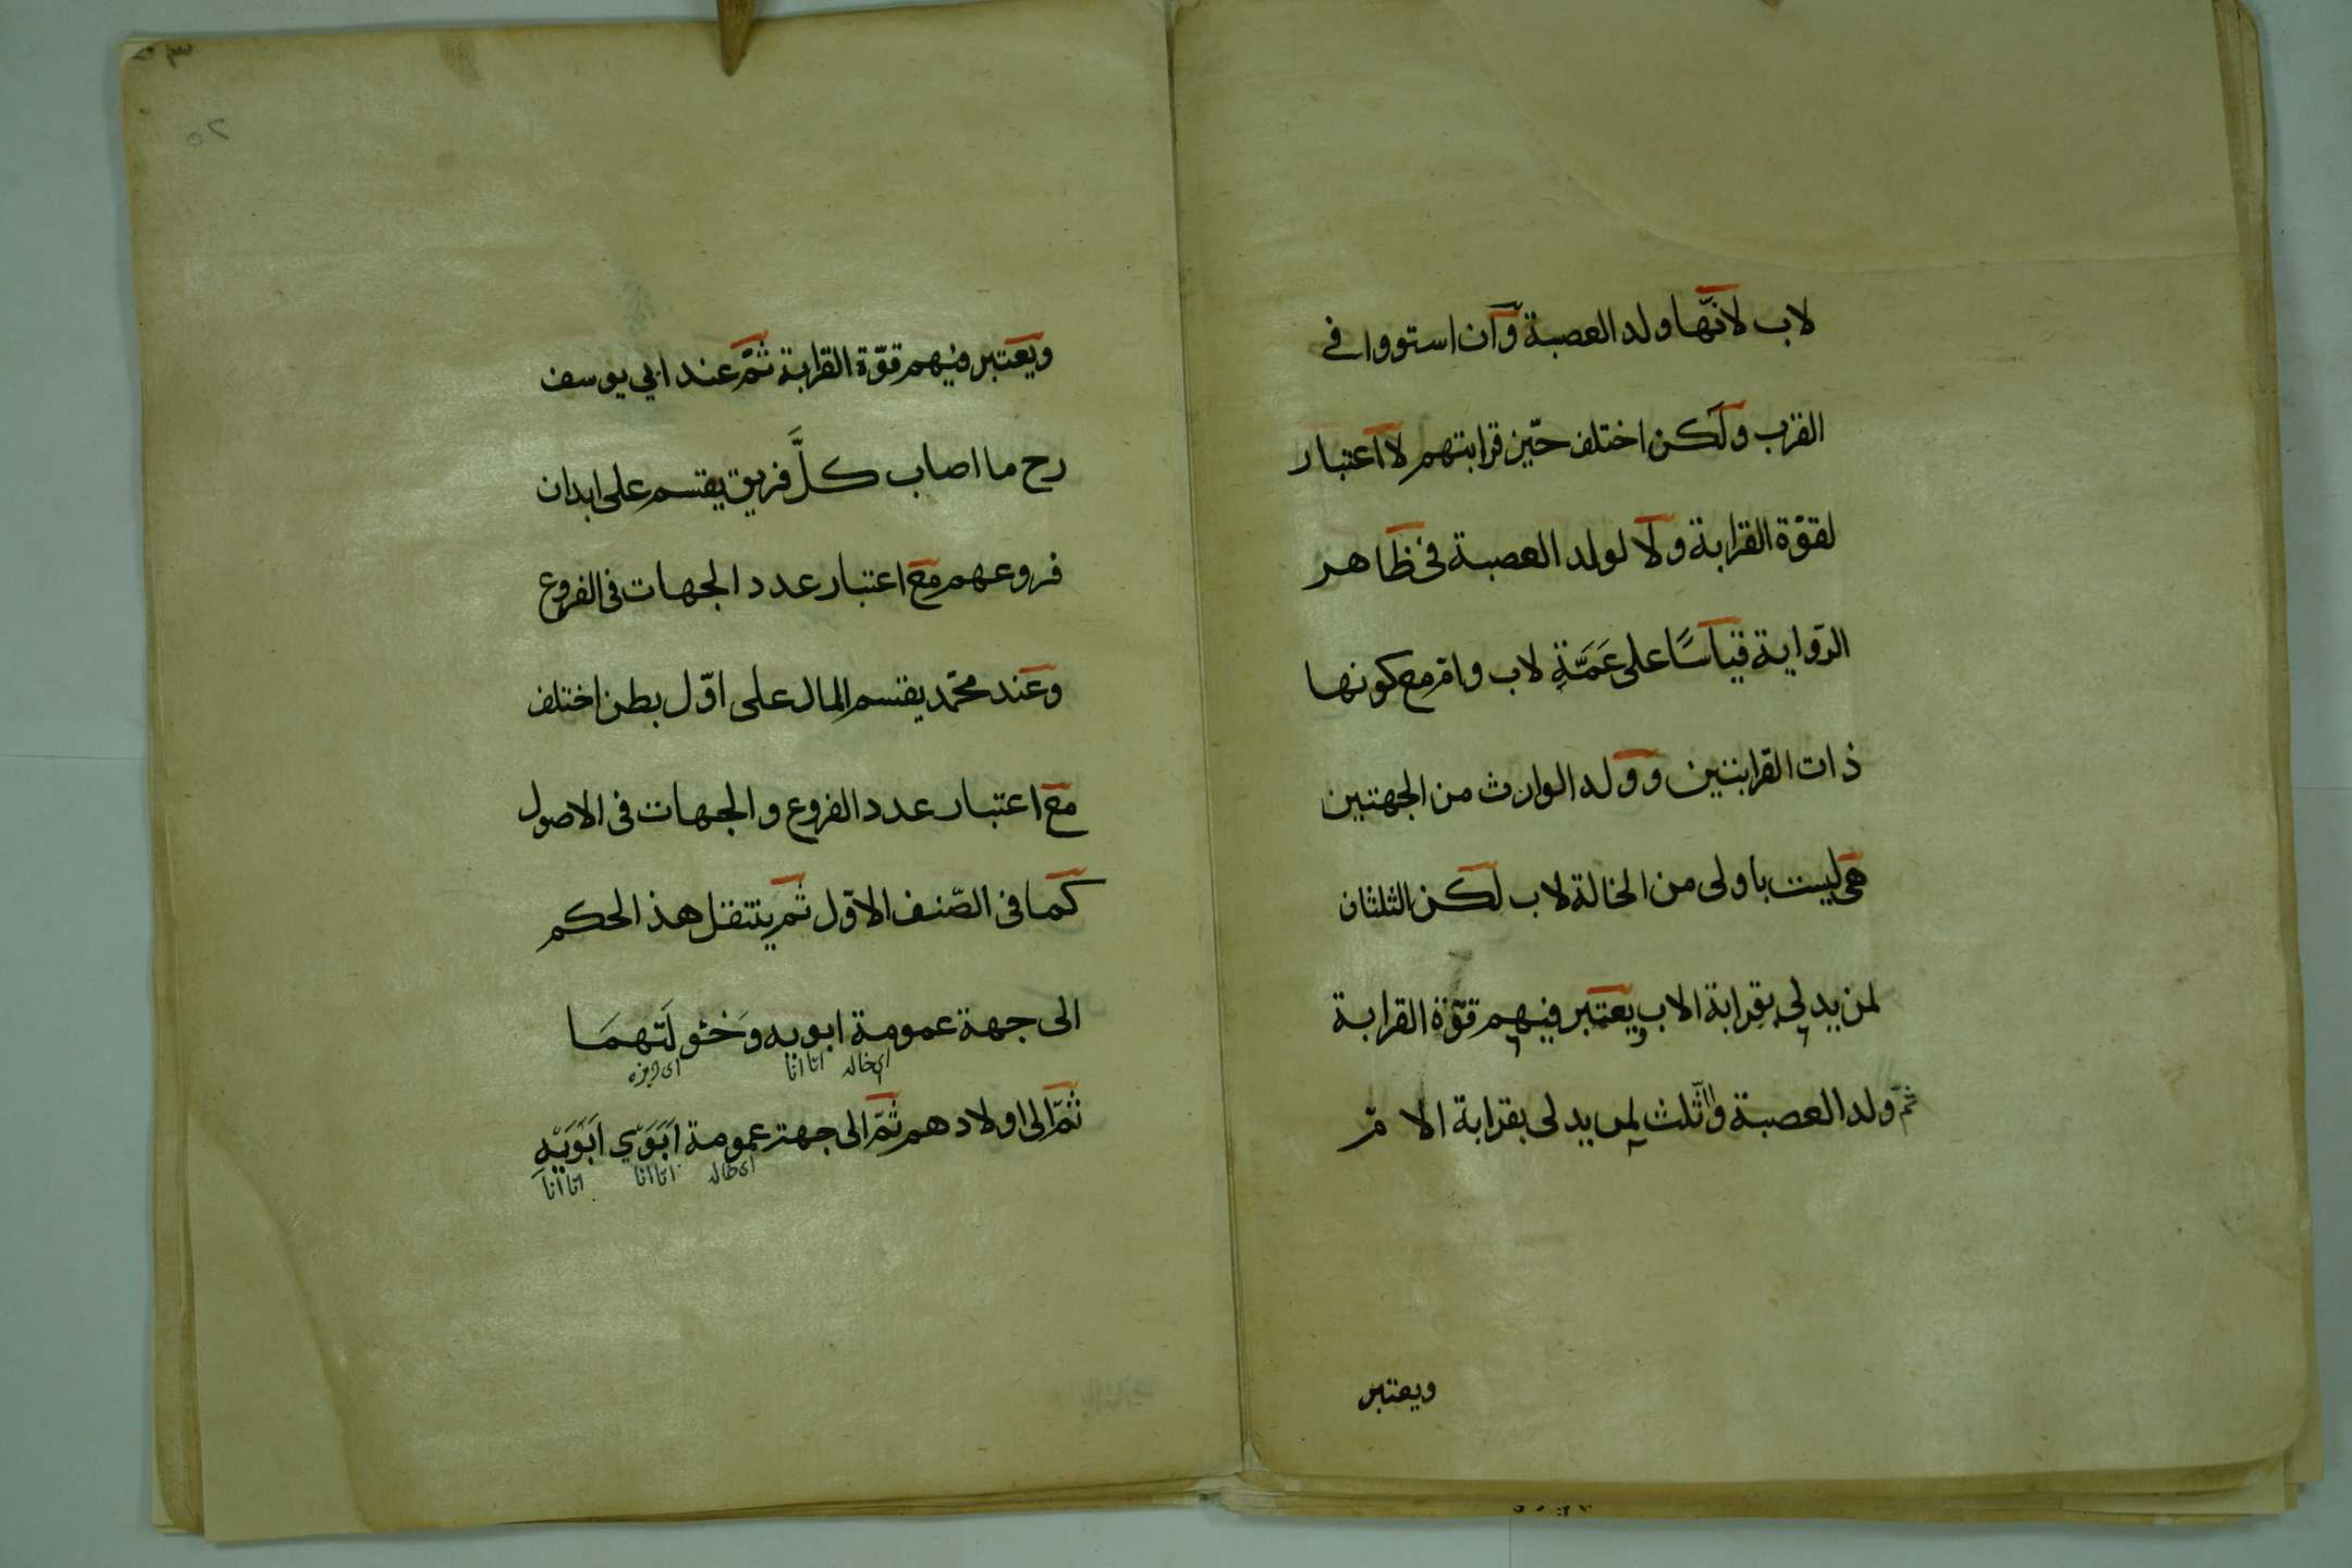 لاب لانّها ولد العصبة وان استووا فى
القرب ولكن اختلف حيّز قرابتهم لا اعتبار
لقوّة القرابة ولا لولد العصبة فى ظاهر
الرّواية قياسًا على عَمَّةٍ لاب وامّ مع كونها
ذات القرابتين وولد الوارث من الجهتين
هى ليست باولى من الخالة لاب لكن الثلثان
لمن يدلى بقرابة الاب ويعتبر فيهم قوّة القرابة
ثمّ ولد العصبة والثّلث لمن يدلى بقرابة الامّ
ويعتبر
٢٥
ويعتبر فيهم قوّة القرابة ثمَّ عند ابي يوسف
رح ما اصاب كلَّ فريق يقتسم على ابدان
فروعهم مع اعتبار عدد الجهات فى الفروع
وعند محمّد يقتسم المال على اوّل بطن اختلف
مع اعتبار عدد الفروع والجهات فى الاصول
كما فى الصّنف الاوّل ثم ينتقل هذ الحكم
الى جهة عمومة ابويه وَخئو لَتهمَا
اى خاله اتا انا
ثمّ الى اولادهم ثمّ الى جهة عمومة اَبَوَىْ اَبَوَيْهِ
اى خاله اتا انا اتا انا